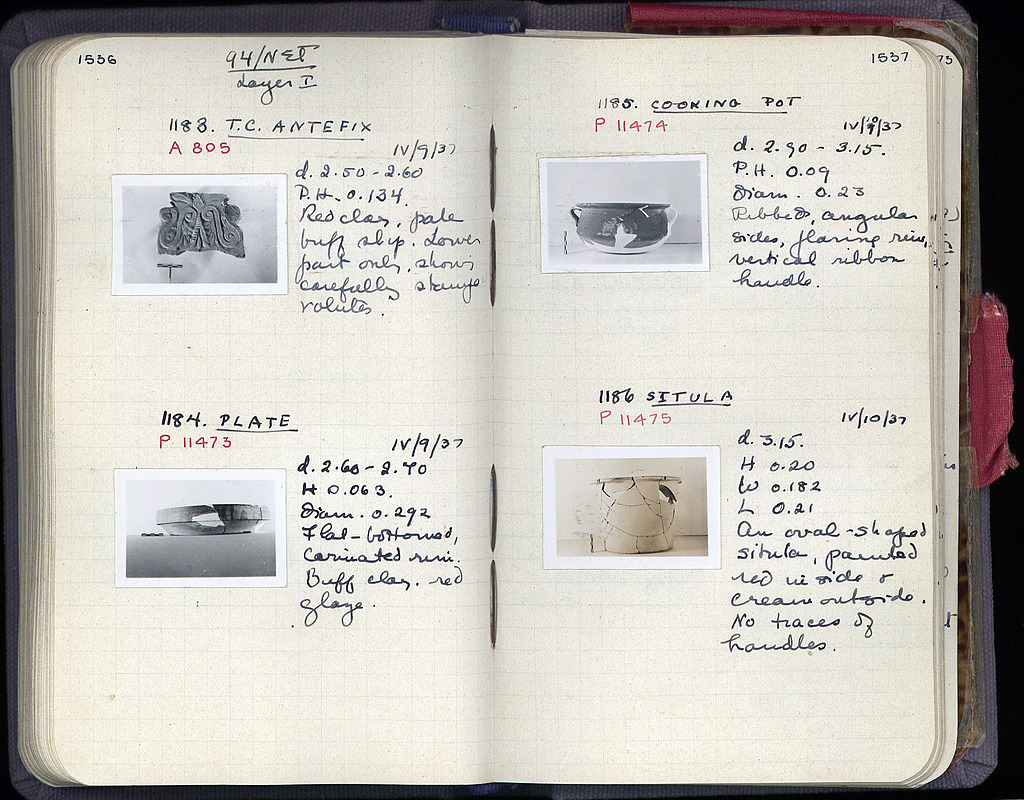 1536
94/NET
Layer I
1183. T.C. ANTEFIX
A 805
IV/9/37
d. 2.50 - 2.60
P.H. 0.134
Red clay, pale
buff slip. Lower
part only, shows
carefully
volutes.
1184. PLATE
P 11473
IV/9/37
d. 2.60 - 2.70
H 0.063.
Diam. 0.292
Flat-bottomed,
carinated rim.
Buff clay, red
glaze.
1537
1185. COOKING POT
P 11474
d. 2.90 - 3.15.
P.H. 0.09
Diam. 0.23
Ribbed, angular
sides, flaring rim,
vertical ribbon
handle.
1186 SITULA
P 11475
IV/10/37
d. 3.15.
H 0.20
W 0.182
L 0.21
An oval-shaped
situla, painted
red inside &
cream outside.
No traces of
handles.